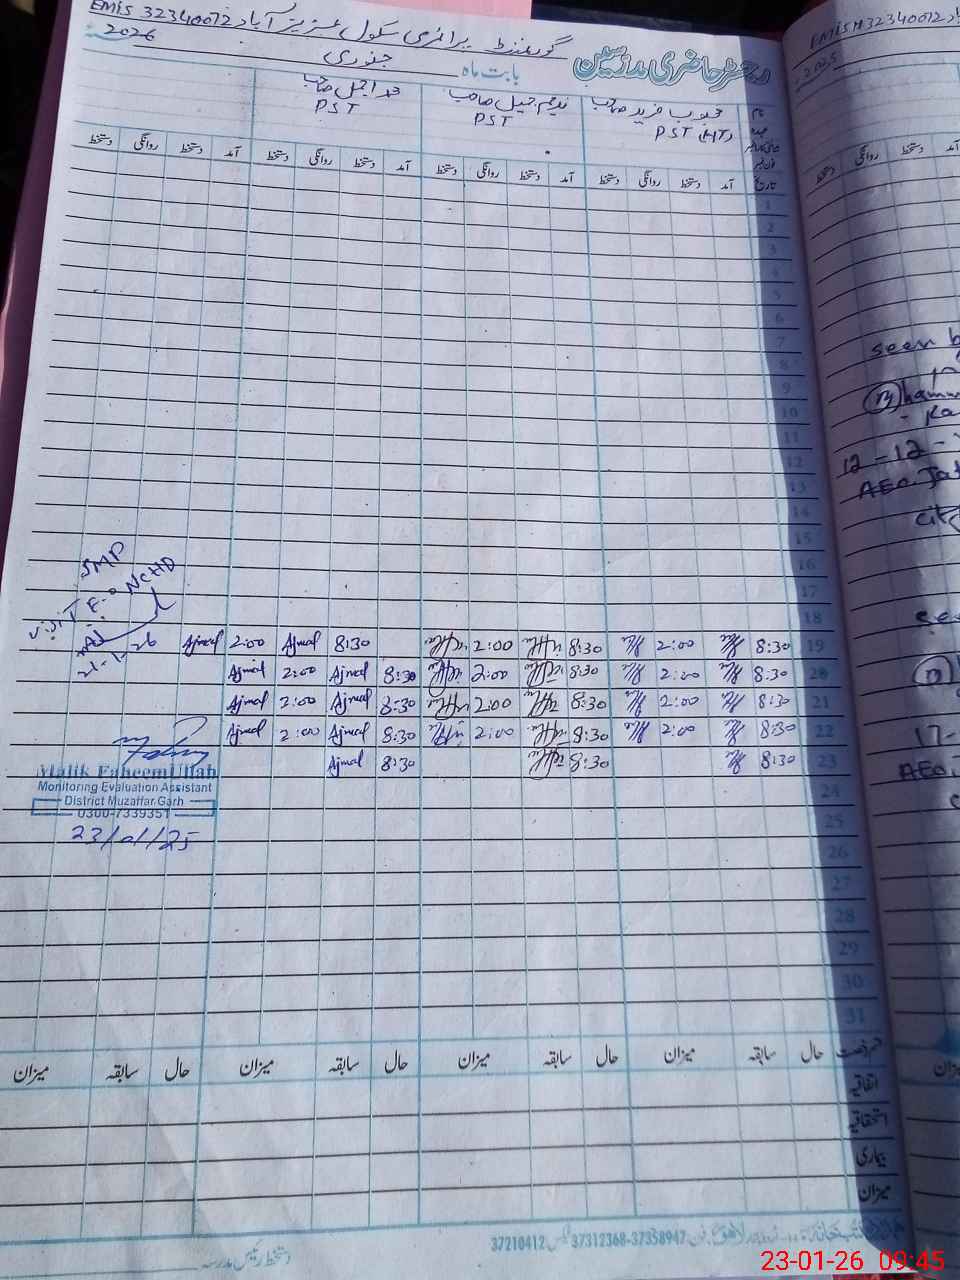 EMIS 32340072 گورنمنٹ پرائمری سکول عزیز آباد
رجسٹر حاضری مدرسین
بابت ماہ جنوری 2026
نام محبوب فرید صاحب ندیم جمیل صاحب محمد اجمل صاحب
عہدہ PST (HT) PST PST
تاریخ آمد دستخط روانگی دستخط آمد دستخط روانگی دستخط آمد دستخط روانگی دستخط آمد دستخط روانگی دستخط
1
2
3
4
5
6
7
8
9
10
11
12
13
14
15
16
17
18
19 8:30 2:00 8:30 2:00 8:30 Ajmal 2:00 Ajmal
20 8:30 2:00 8:30 2:00 8:30 Ajmal 2:00 Ajmal
21 8:30 2:00 8:30 2:00 8:30 Ajmal 2:00 Ajmal
22 8:30 2:00 8:30 2:00 8:30 Ajmal 2:00 Ajmal
23 8:30 8:30 8:30 Ajmal
24
25
26
27
28
29
30
31
SMP
VISIT F.O NCHD
21-1-26
Malik FaheemUllah
Monitoring Evaluation Assistant
District Muzaffar Garh
0300-7339351
23/01/25
قسم رخصت حال سابقہ میزان حال سابقہ میزان حال سابقہ میزان حال سابقہ میزان
اتفاقیہ
استحقاقیہ
بیماری
میزان
دستخط رئیس مدرسہ
37312368-37358947 37210412
EMIS# 32340072
2025
آمد دستخط روانگی دستخط
seen b
12-12-
AEO. Jat
city
17-
AEO.
23-01-26 09:45